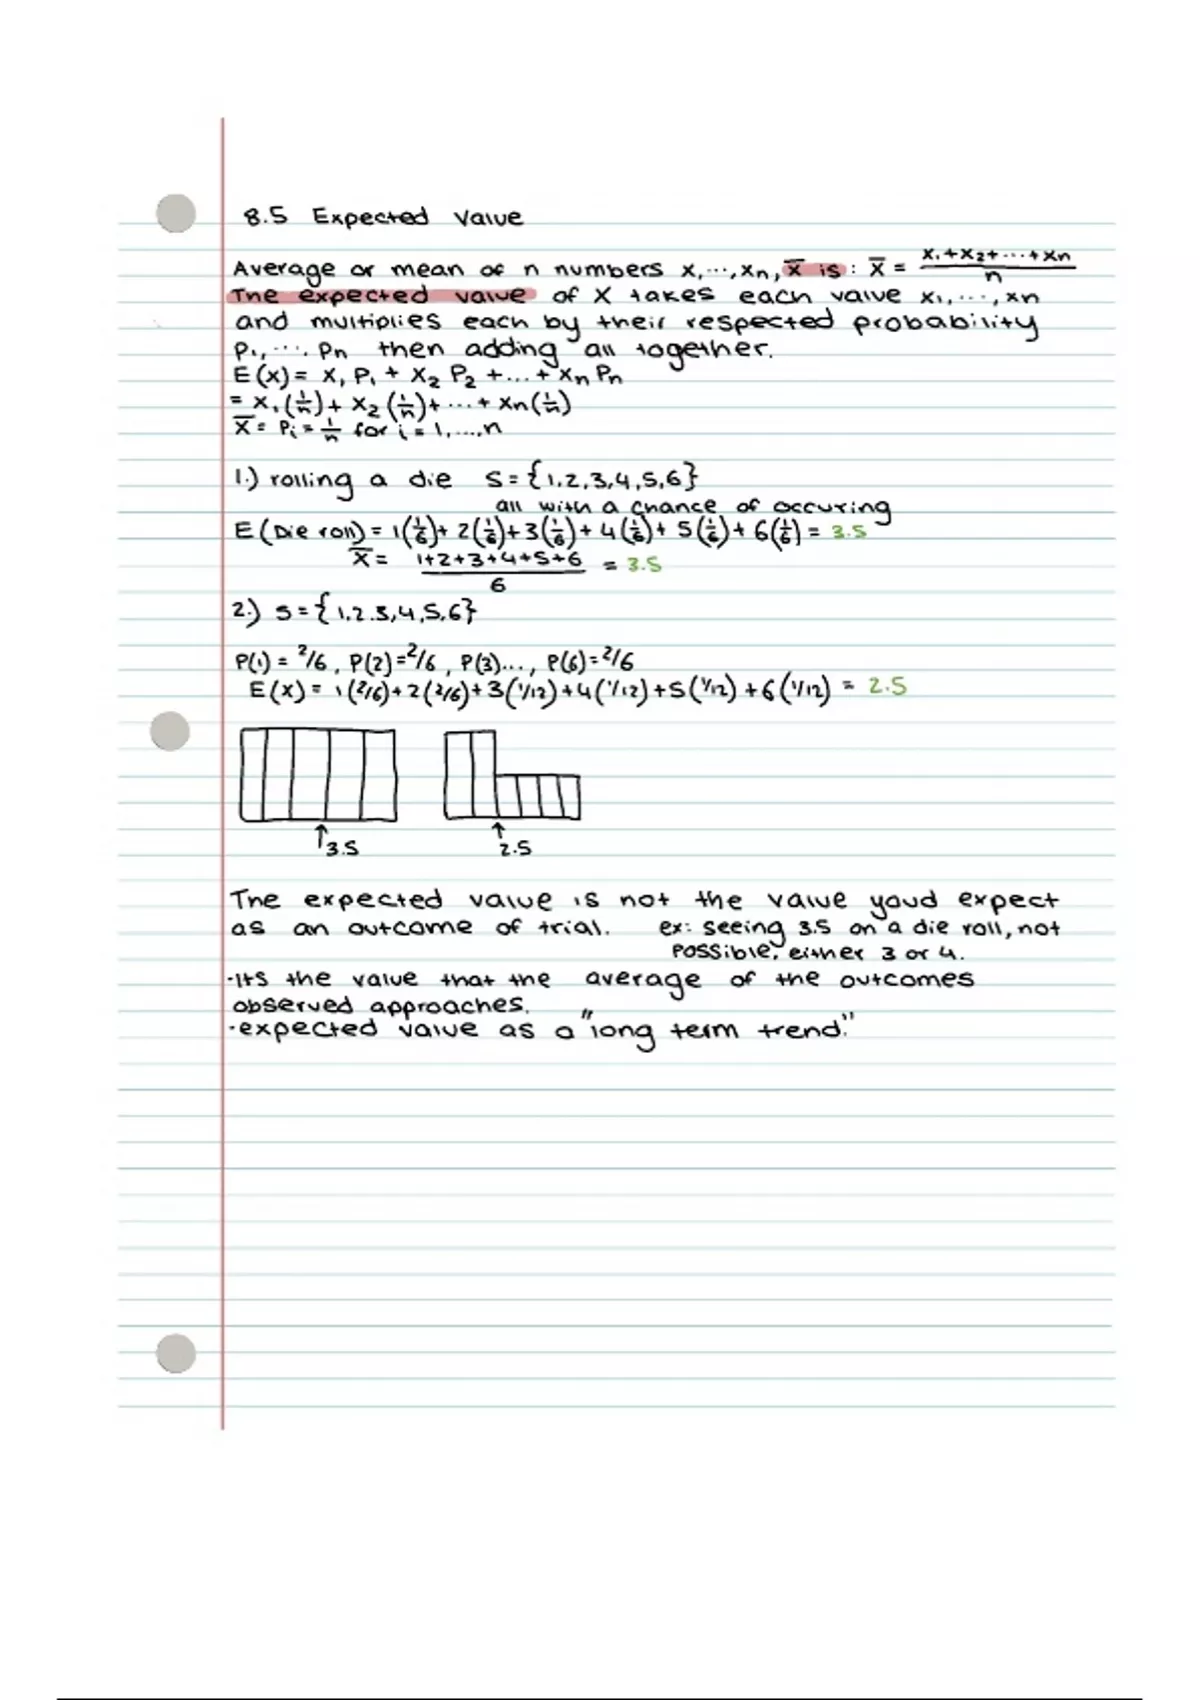 8.5 Expected Value
Average or mean of n numbers x₁,...,xn, x̅ is: x̅ = (x₁+x₂+...+xn)/n
The expected value of X takes each value x₁,...,xn
and multiplies each by their respected probability
P₁,...Pn then adding all together.
E(x) = x₁ P₁ + x₂ P₂ +...+ xn Pn
= x₁(1/n) + x₂(1/n) + ... + xn(1/n)
x̅ = Pi = 1/n for i = 1,...,n
1.) rolling a die S = {1,2,3,4,5,6}
all with a chance of occuring
E(Die roll) = 1(1/6) + 2(1/6) + 3(1/6) + 4(1/6) + 5(1/6) + 6(1/6) = 3.5
x̅ = (1+2+3+4+5+6)/6 = 3.5
2.) S = {1,2.3,4,5,6}
P(1) = 2/6, P(2) = 2/6, P(3)..., P(6) = 2/6
E(x) = 1(2/6) + 2(2/6) + 3(1/12) + 4(1/12) + 5(1/12) + 6(1/12) = 2.5
↑3.5 ↑2.5
The expected value is not the value youd expect
as an outcome of trial. ex: seeing 3.5 on a die roll, not
possible, either 3 or 4.
·Its the value that the average of the outcomes
observed approaches.
·expected value as a "long term trend."